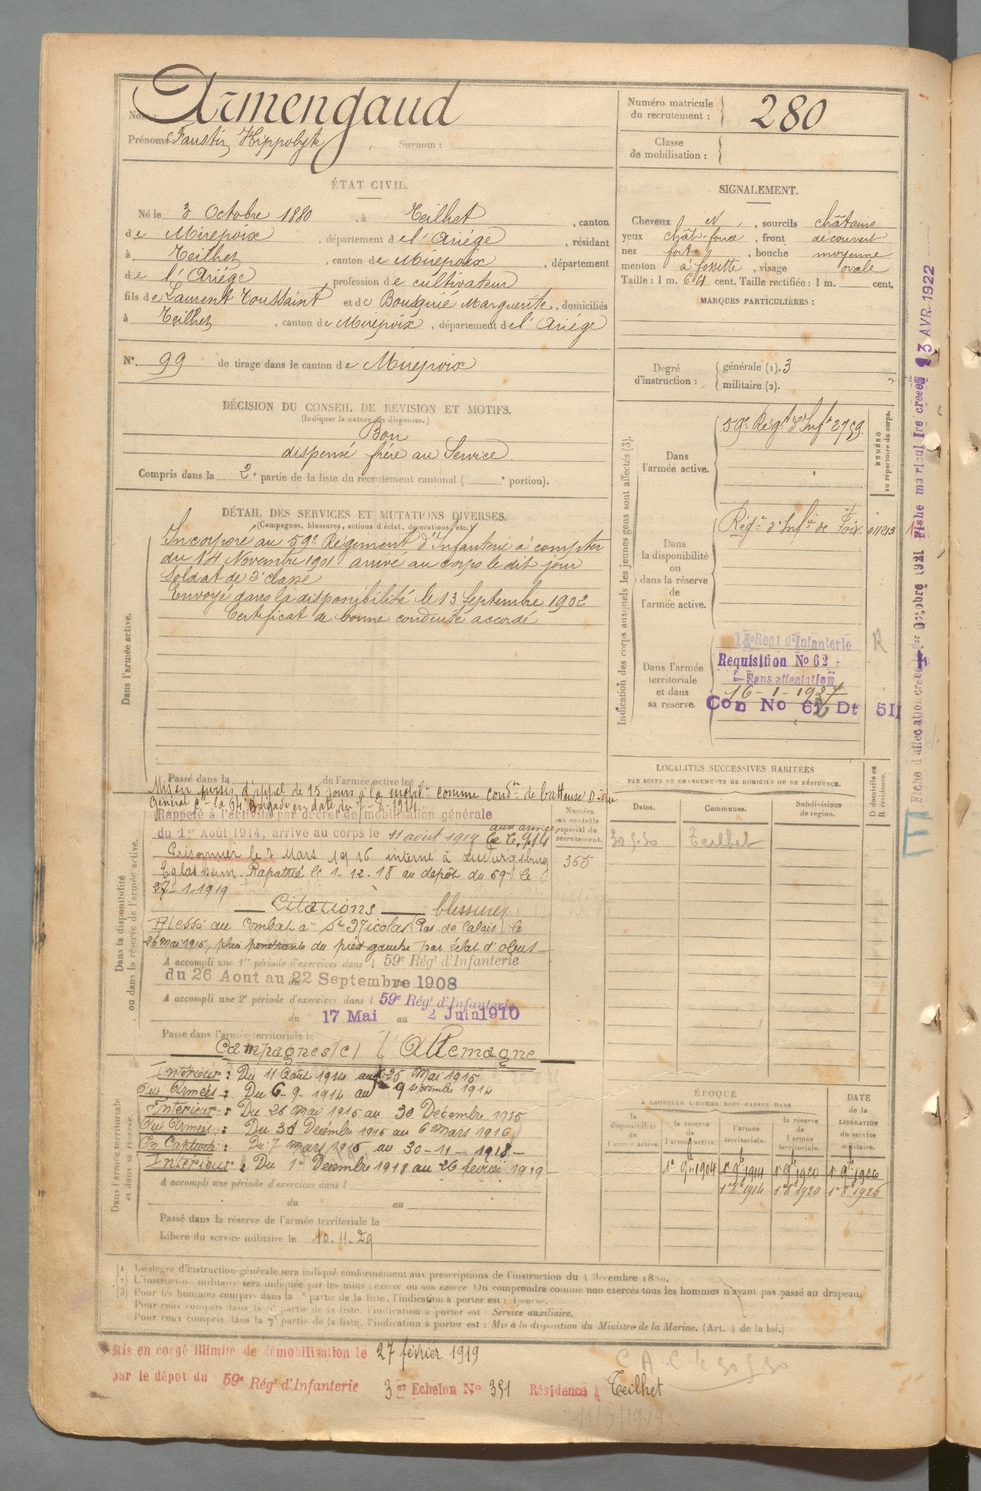 Nom : Armengaud
Prénoms : Faustin Hippolyte Surnom :
Numéro matricule du recrutement : 280
Classe de mobilisation :
ÉTAT CIVIL.
Né le 3 Octobre 1880, à Teilhet, canton
de Mirepoix, département de l'Ariège, résidant
à Teilhet, canton de Mirepoix, département
de l'Ariège, profession de cultivateur
fils de Laurent Toussaint et de Bouguié Marguerite, domiciliés
à Teilhet, canton de Mirepoix, département de l'Ariège
N° 99 de tirage dans le canton de Mirepoix
SIGNALEMENT.
Cheveux et, sourcils châtains
yeux chât. foncé, front découvert
nez fort, bouche moyenne
menton à fossette, visage ovale
Taille : 1 m. 64 cent. Taille rectifiée : 1 m. cent.
MARQUES PARTICULIÈRES :
Degré d'instruction : générale (1). 3
militaire (2).
DÉCISION DU CONSEIL DE REVISION ET MOTIFS.
(Indiquer la nature des dispenses.)
Bon
dispensé frère au Service
Compris dans la 2e partie de la liste du recrutement cantonal ( e portion).
DÉTAIL DES SERVICES ET MUTATIONS DIVERSES.
(Campagnes, blessures, actions d'éclat, décorations, etc.)
Dans l'armée active.
Incorporé au 59e Régiment d'Infanterie à compter
du 14 Novembre 1901 arrivé au corps le dit jour
Soldat de 2e classe
Envoyé dans la disponibilité le 13 Septembre 1902
Certificat de bonne conduite accordé
Passé dans la de l'armée active le
Mis en sursis d'appel de 15 jours à la mobon comme condr de batteuse
Général Ct la 64 Brigade en date du
Dans la disponibilité ou dans la réserve de l'armée active.
Rappelé à l'activité par décret de mobilisation générale
du 1er Août 1914, arrivé au corps le 11 août 1914 aux armées
Prisonnier le 7 Mars 1916 interné à Ludwigsburg
Eglosheim. Rapatrié le 1-12-18 au dépôt du 59e le
27-1-1919
Citations blessures
Blessé au combat à St Nicolas (Pas de Calais) le
26 mai 1915, du pied gauche par éclat d'obus
A accompli une 1re période d'exercices dans l 59e Régt d'Infanterie
du 26 Aout au 22 Septembre 1908
A accompli une 2e période d'exercices dans l 59e Régt d'Infanterie
du 17 Mai au 2 Juin 1910
Passé dans l'armée territoriale le
Campagne(s) l'Allemagne
Dans l'armée territoriale et dans sa réserve.
Intérieur : Du 11 Août 1914 au
Aux Armées : Du 6-9-1914 au
Intérieur : Du 26 Mai 1915 au 30 Décembre 1915
Aux Armées : Du 31 Décembre 1915 au 6 Mars 1916
En Captivité : Du 7 mars 1916 au 30-11-1918
Intérieur : Du 1er Décembre 1918 au 26 février 1919
A accompli une période d'exercices dans l
du au
Passé dans la réserve de l'armée territoriale le
Libéré du service militaire le 10-11-29
Numéro au contrôle spécial du recrutement.
365
Indication des corps auxquels les jeunes gens sont affectés (3).
NUMÉRO au répertoire du corps.
Dans l'armée active.
59e Régt d'Inf. 2759
Dans la disponibilité ou dans la réserve de l'armée active.
Régt d'Infie de Foix
Dans l'armée territoriale et dans sa réserve.
Regt d'Infanterie
Requisition No 62
Sans affectation
16-1-1927
Con No 62 Dt 511
R
LOCALITÉS SUCCESSIVES HABITÉES
PAR SUITE DE CHANGEMENTS DE DOMICILE OU DE RÉSIDENCE.
Dates. Communes. Subdivisions de région. D. domicile ou R. résidence.
30.5.30 Teilhet
ÉPOQUE
À LAQUELLE L'HOMME DOIT PASSER DANS
la disponibilité de l'armée active. la réserve de l'armée active. l'armée territoriale. la réserve de l'armée territoriale.
DATE de la LIBÉRATION du service militaire.
1r 9bre 1904 1r 9bre 1914 1r 9bre 1920 1r 9bre 1926
1r 8bre 1914 1r 8bre 1920 1r 8bre 1926
(1) Le degré d'instruction générale sera indiqué conformément aux prescriptions de l'instruction du 4 décembre 1889.
(2) L'instruction militaire sera indiquée par les mots : exercé ou non exercé. On comprendra comme non exercés tous les hommes n'ayant pas passé au drapeau.
(3) Pour les hommes compris dans la e partie de la liste, l'indication à porter est :
Pour ceux compris dans la e partie de la liste, l'indication à porter est : Service auxiliaire.
Pour ceux compris dans la 7e partie de la liste, l'indication à porter est : Mis à la disposition du Ministre de la Marine. (Art. 4 de la loi.)
Mis en congé illimité de démobilisation le 27 février 1919
par le dépôt du 59e Régt d'Infanterie 3e Echelon No 351 Résidence à Teilhet
C.A.C. le 30.5.30
Fiche d'affectation créée le 1er Octobre 1921 Fiche matricule créée 13 AVR 1922